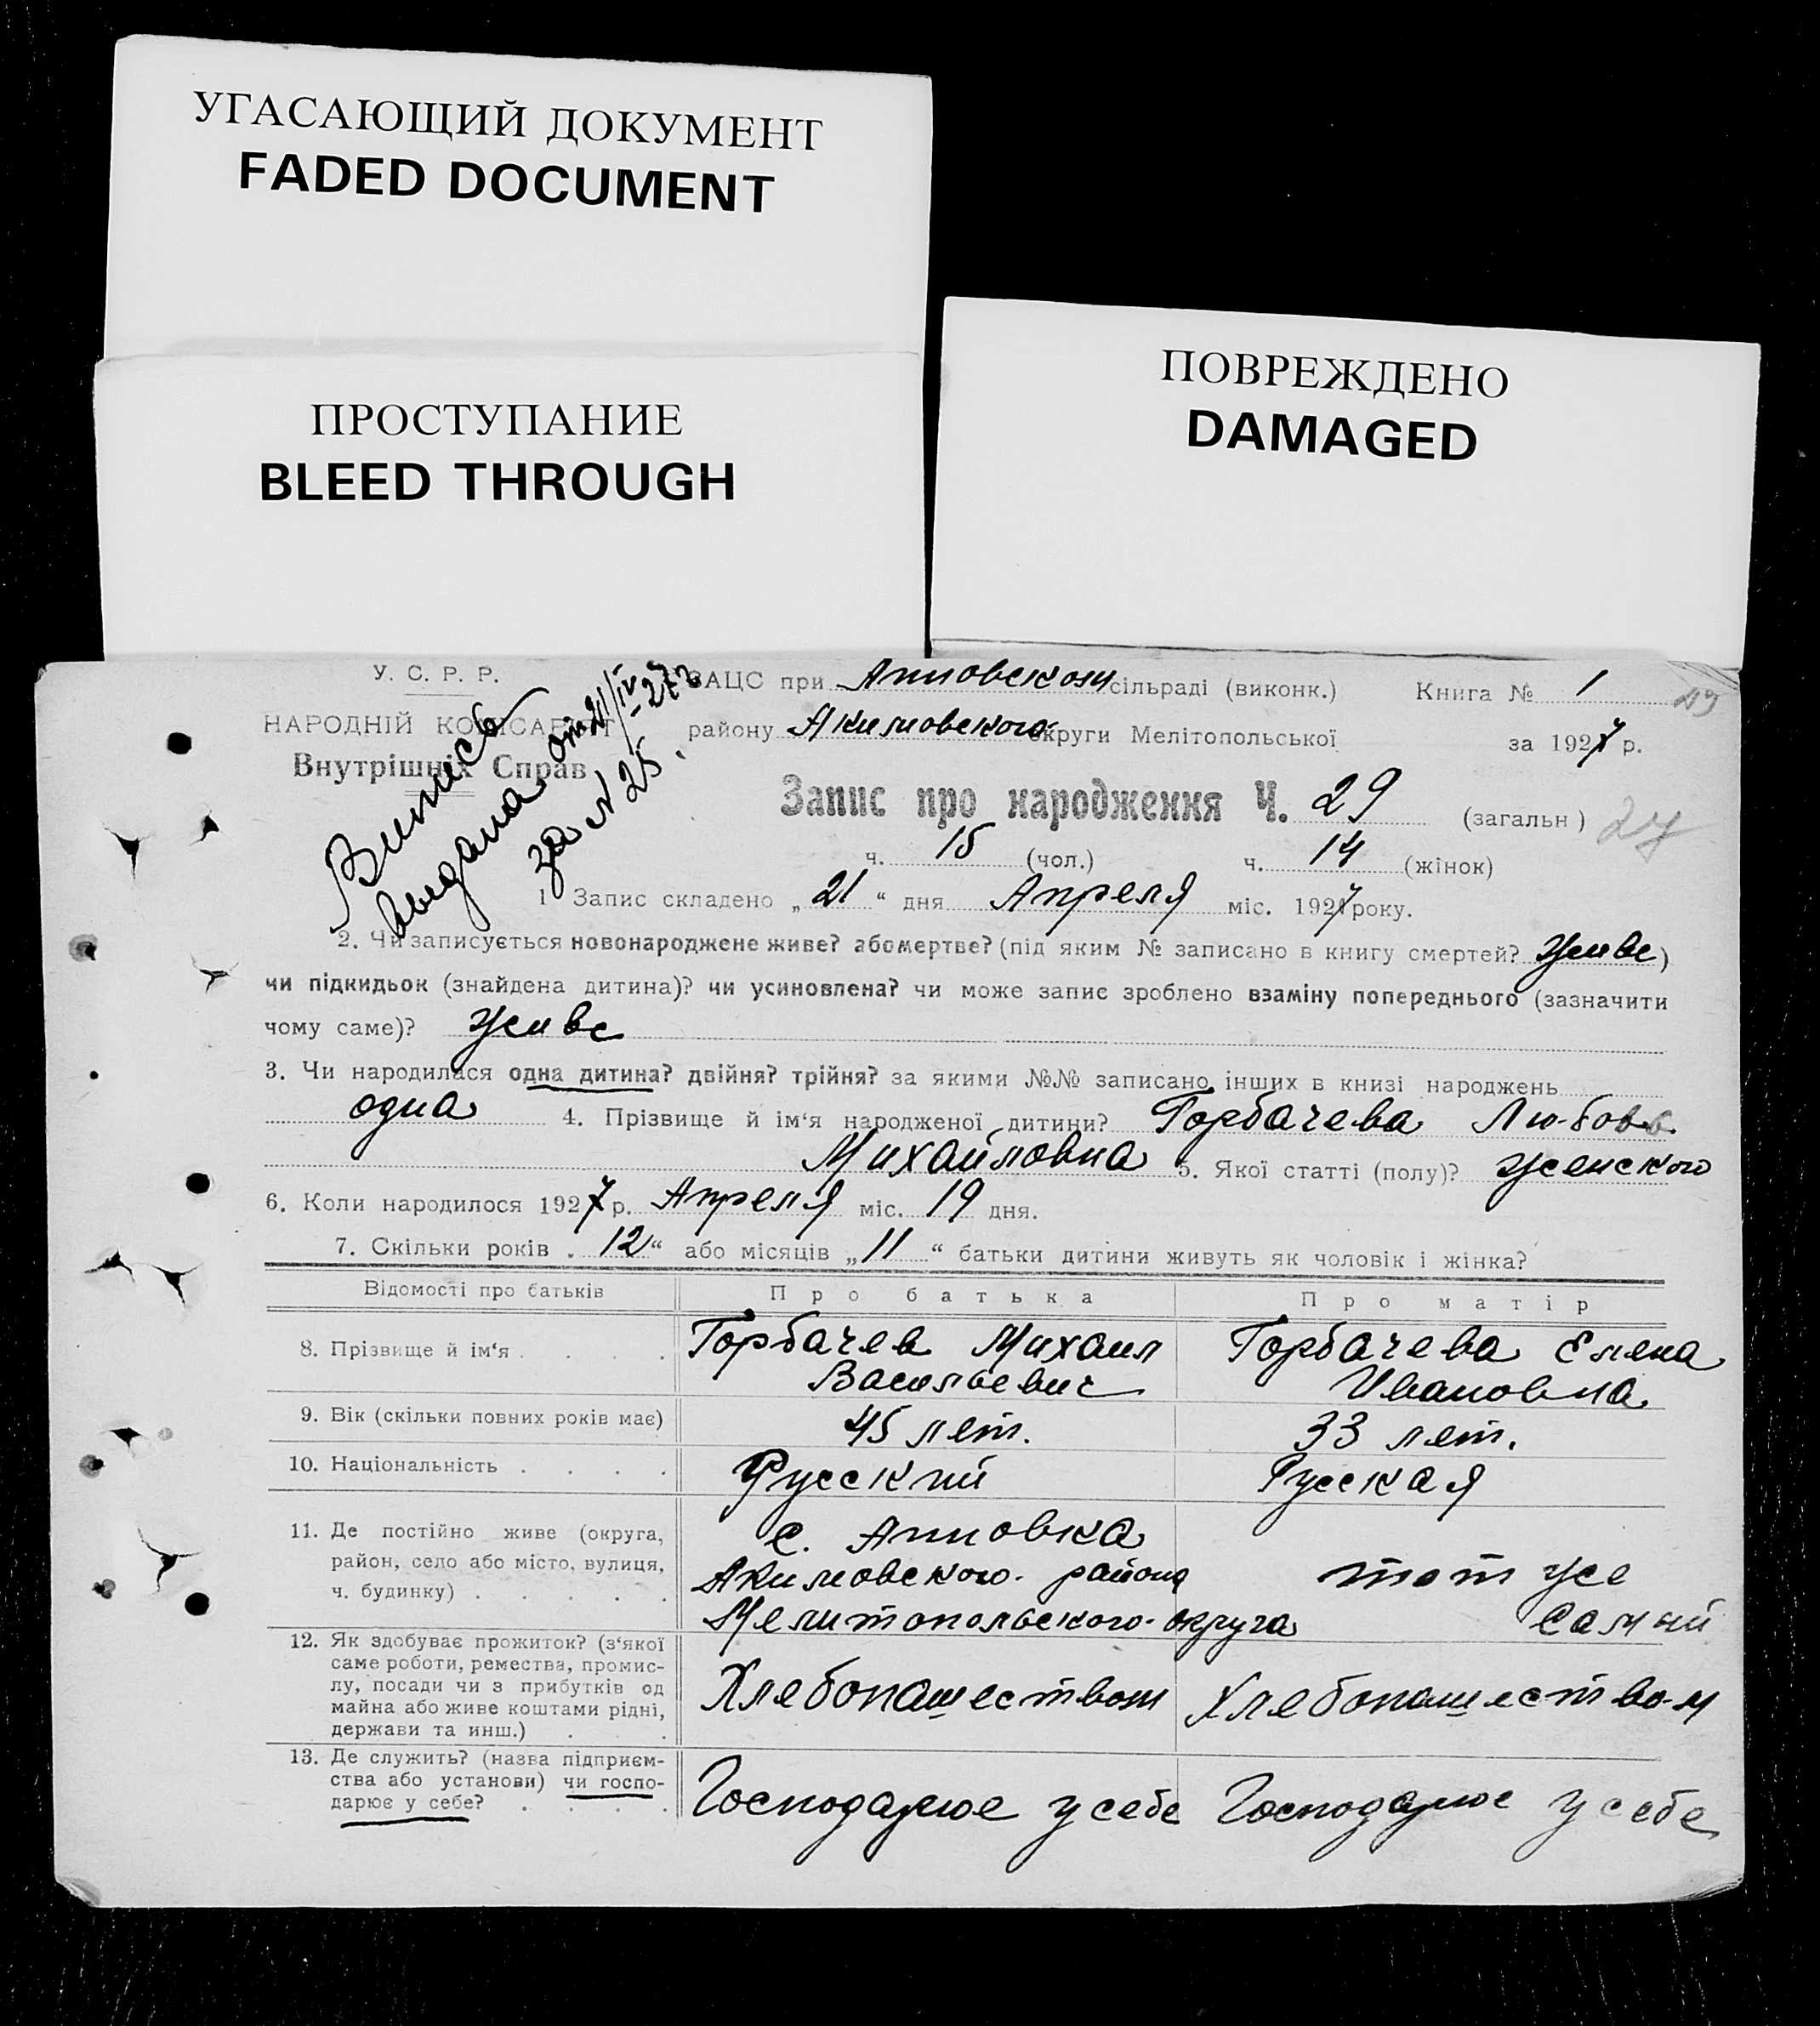 УГАСАЮЩИЙ ДОКУМЕНТ
FADED DOCUMENT
ПРОСТУПАНИЕ
BLEED THROUGH
ПОВРЕЖДЕНО
DAMAGED
У. С. Р. Р.
НАРОДНІЙ КОМІСАРІЯТ
Внутрішніх Справ
Выпись
выдана от 21/IV-27 г
за № 25.
ЗАЦС при Анновском сільраді (виконк.) Книга № 1
району Акимовского округи Мелітопольської за 1927 р.
Запис про народження Ч. 29 (загальн)
ч. 15 (чол.) ч. 14 (жінок)
1 Запис складено „21“ дня Апреля міс. 1927 року.
2. Чи записується новонароджене живе? або мертве? (під яким № записано в книгу смертей? живе)
чи підкидьок (знайдена дитина)? чи усиновлена? чи може запис зроблено взаміну попереднього (зазначити
чому саме)? живе
3. Чи народилася одна дитина? двійня? трійня? за якими №№ записано інших в книзі народжень
одна 4. Прізвище й ім‘я народженої дитини? Горбачева Любовь
Михайловна 5. Якої статті (полу)? женского
6. Коли народилося 1927 р. Апреля міс. 19 дня.
7. Скільки років „12“ або місяців „11“ батьки дитини живуть як чоловік і жінка?
Відомості про батьків Про батька Про матір
8. Прізвище й ім‘я . . . . Горбачев Михаил Горбачева Елена
Васильевич Ивановна
9. Вік (скільки повних років має) 45 лет. 33 лет.
10. Національність . . . . Русский Русская
11. Де постійно живе (округа, с. Анновка
район, село або місто, вулиця, Акимовского района тот же
ч. будинку) . . . . . Мелитопольского округа самий
12. Як здобуває прожиток? (з‘якої
саме роботи, ремества, промис-
лу, посади чи з прибутків од Хлебопашеством Хлебопашеством
майна або живе коштами рідні,
держави та инш.) . . .
13. Де служить? (назва підприєм-
ства або установи) чи госпо- Господарює у себе Господарює у себе
дарює у себе? . . . .